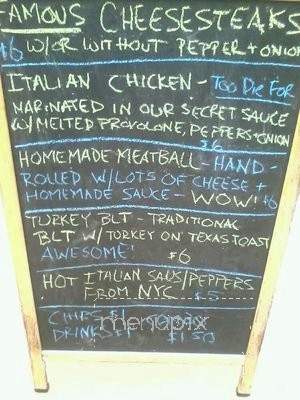 FAMOUS CHEESESTEAKS
$6 W/OR WITHOUT PEPPER + ONION
ITALIAN CHICKEN - TOO DIE FOR
MARINATED IN OUR SECRET SAUCE
W/MELTED PROVOLONE, PEPPERS + ONION
$6
HOMEMADE MEATBALL - HAND-
ROLLED W/LOTS OF CHEESE +
HOMEMADE SAUCE - WOW! $6
TURKEY BLT - TRADITIONAL
BLT W/TURKEY ON TEXAS TOAST
AWESOME! $6
HOT ITALIAN SAUS/PEPPERS
FROM NYC $5
CHIPS $1
DRINKS $1 $1.50
menupix